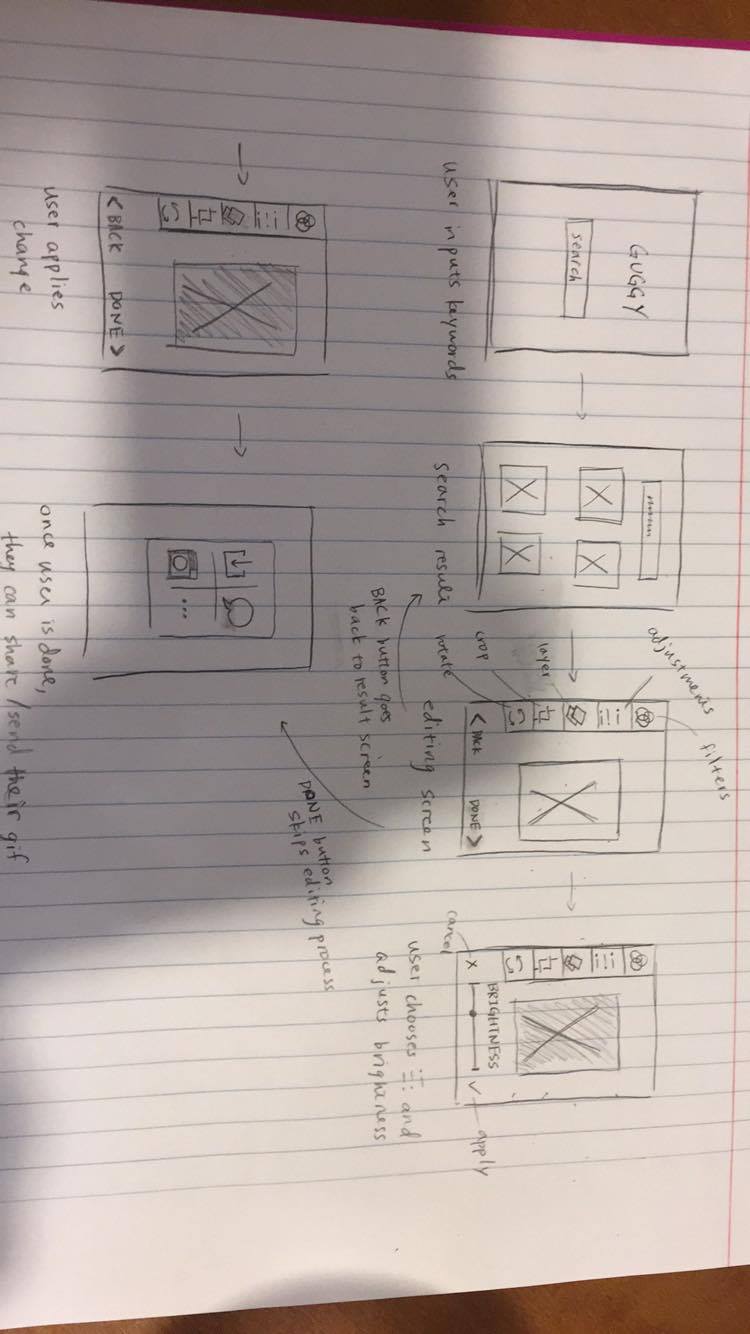 GUGGY
search
user inputs keywords
search result
filters
adjustments
layer
crop
rotate
< BACK
DONE >
editing screen
BACK button goes
back to result screen
DONE button
skips editing process
BRIGHTNESS
X
✓
cancel
apply
user chooses and
adjusts brightness
< BACK
DONE >
user applies
change
...
once user is done,
they can share/send their gif